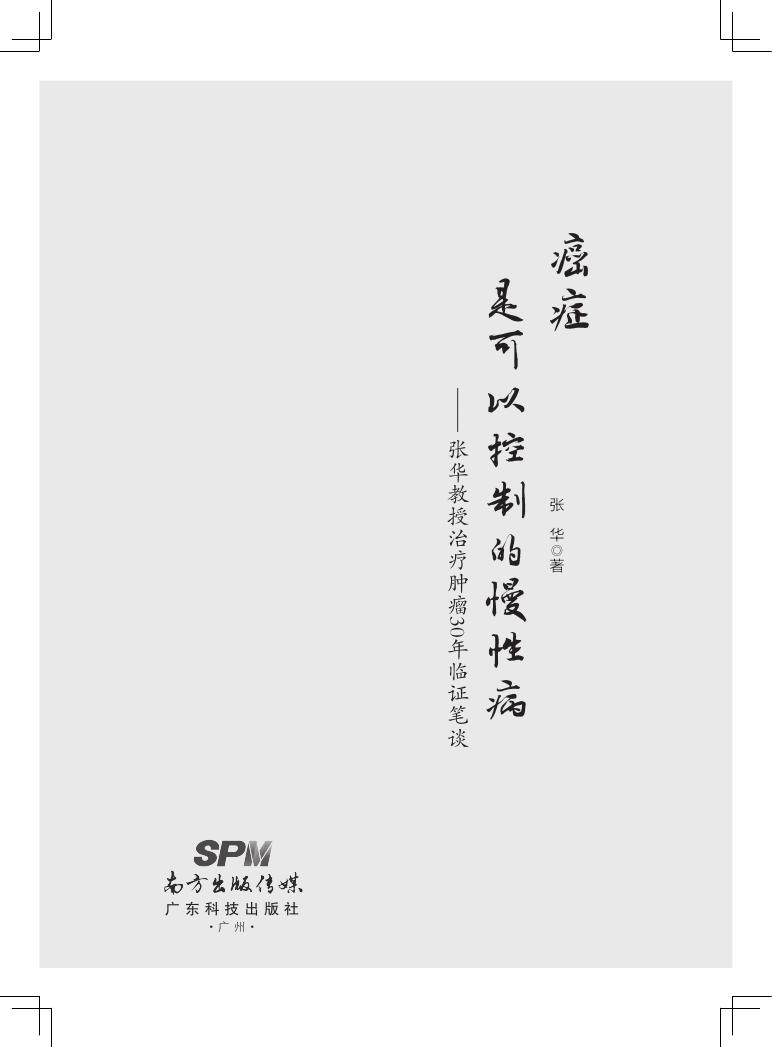 癌症
是可以控制的慢性病
——张华教授治疗肿瘤30年临证笔谈
张 华◎著
SPM
南方出版传媒
广东科技出版社
·广州·